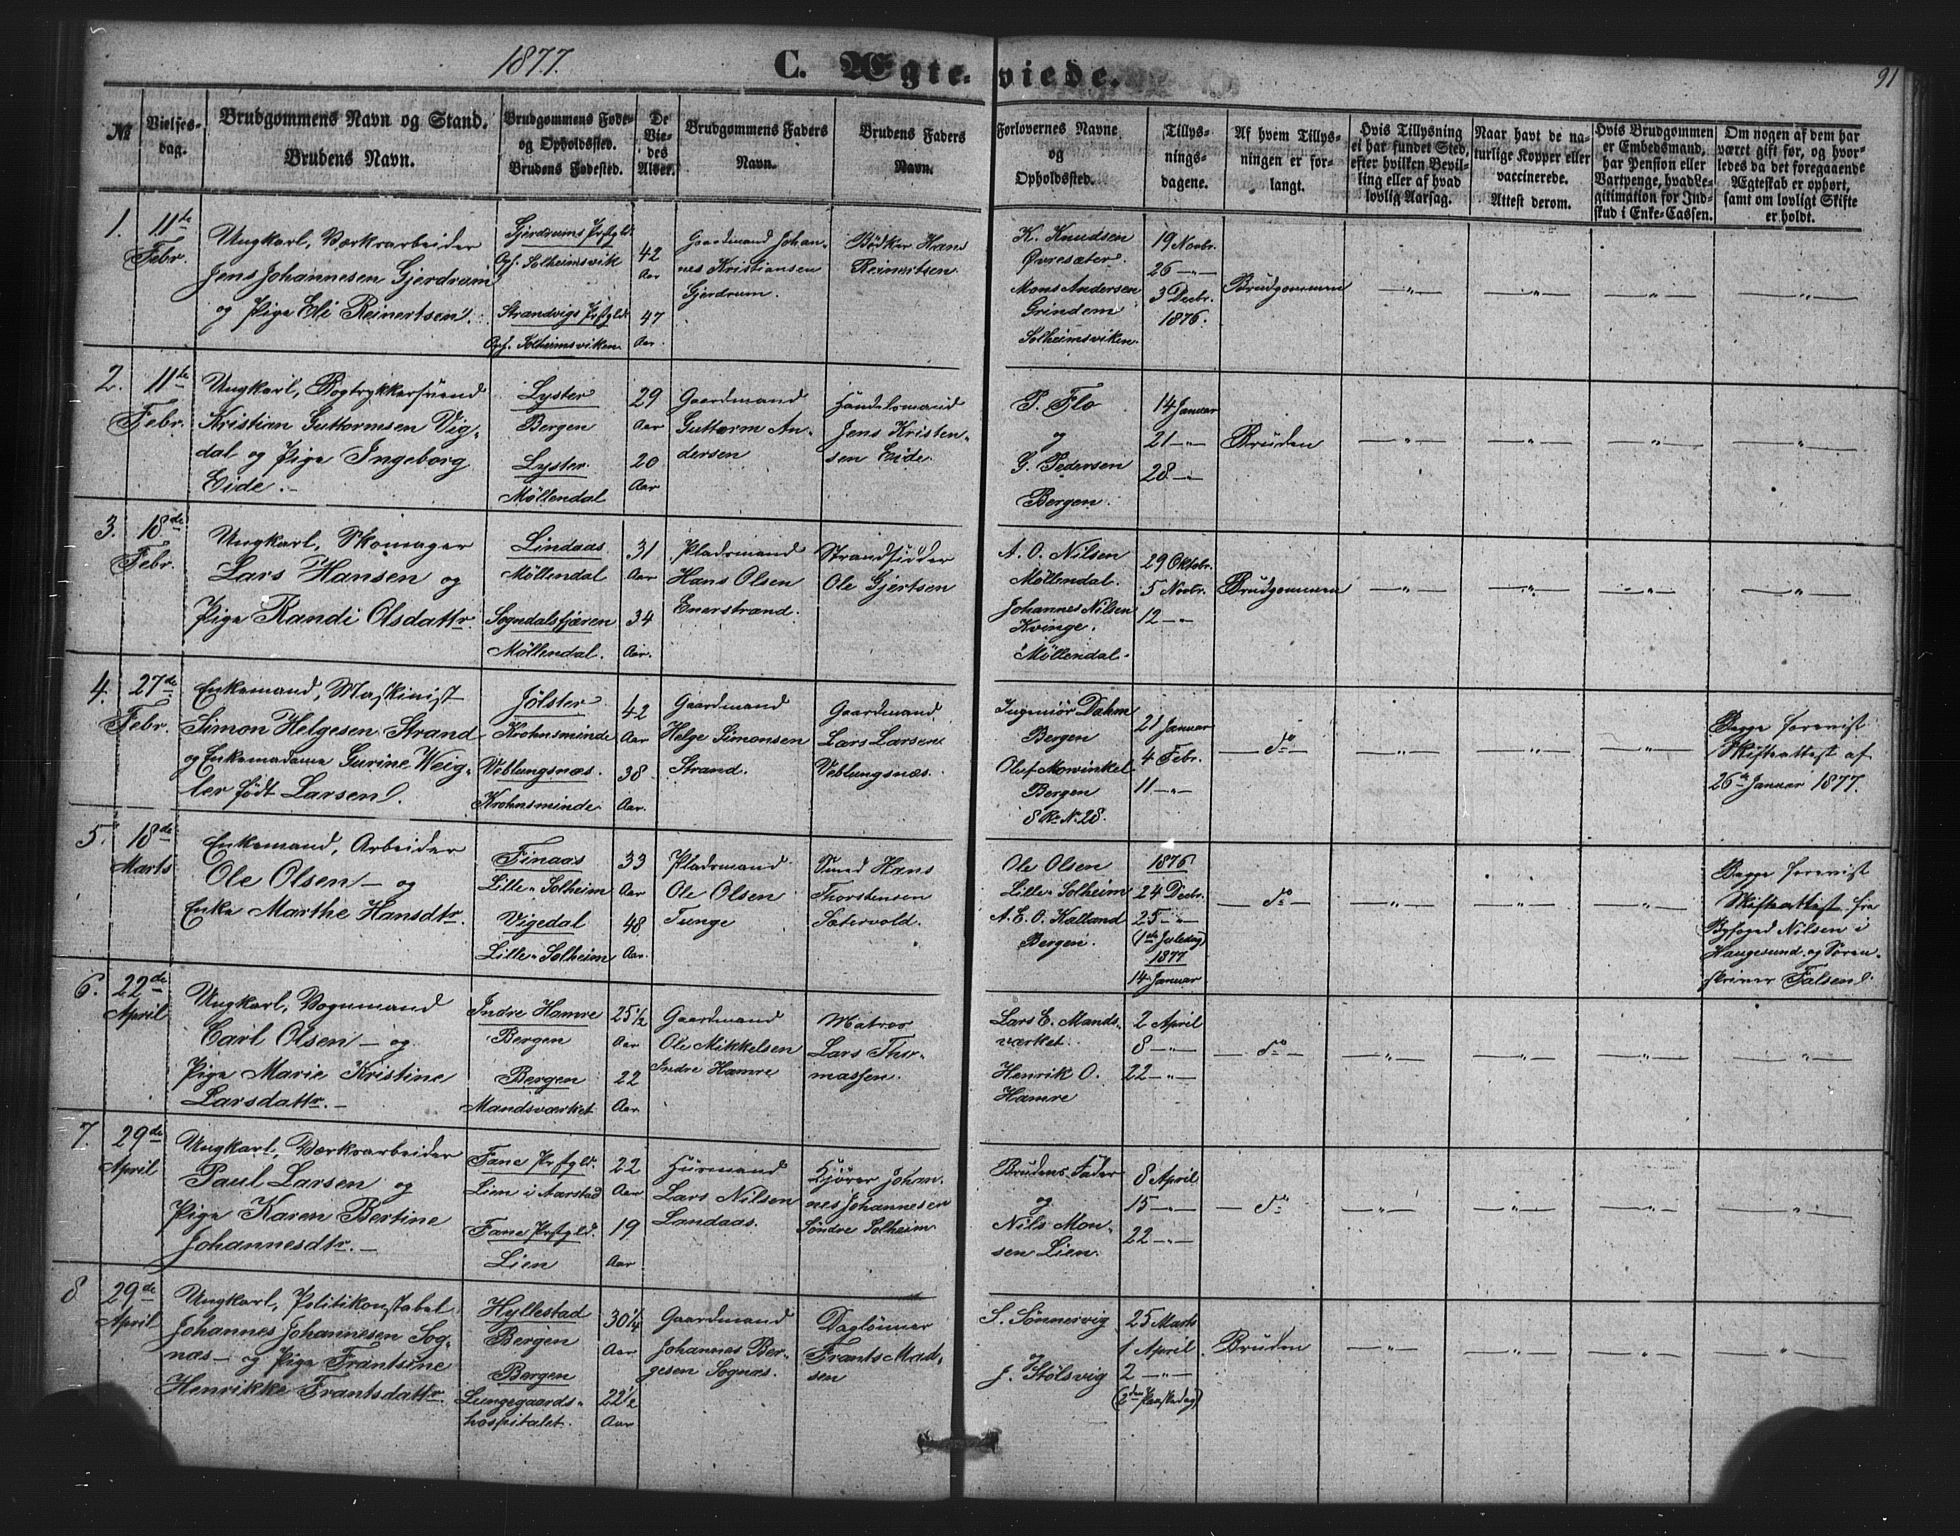 1877.
C. Ægteviede.
91
№
Vielses-
dag.
Brudgommens Navn og Stand.
Brudens Navn.
Brudgommens Føde-
og Opholdssted.
Brudens Fødested.
De
Vie-
des
Alder.
Brudgommens Faders
Navn.
Brudens Faders
Navn.
Forlovernes Navne
og
Opholdssted.
Tillys-
nings-
dagene.
Af hvem Tillys-
ningen er for-
langt.
Hvis Tillysning
ei har fundet Sted,
efter hvilken Bevil-
ling eller af hvad
lovlig Aarsag.
Naar havt de na-
turlige Kopper eller
vaccinerede.
Attest derom.
Hvis Brudgommen
er Embedsmand,
har Pension eller
Vartpenge, hvad Le-
gitimation for Ind-
skud i Enke-Cassen.
Om nogen af dem har
været gift før, og hvor-
ledes da det foregaaende
Ægteskab er ophørt,
samt om lovligt Skifte
er holdt.
1.
11te
Febr.
Ungkarl, Værksarbeider
Jens Johannesen Gjerdrum
og Pige Eli Reinertsen.
Gjerdrums Prstgld.
Oph. Solheimsvik
Strandvigs Prstgld.
Oph. Solheimsviken
42
Aar
47
Aar.
Gaardmand Johan-
nes Kristiansen
Gjerdrum.
Bødker Hans
Reinertsen.
K. Knudsen
Øvresæter.
Mons Andersen
Grindem
Solheimsviken.
19 Novbr.
26 -"-
3 Decbr.
1876.
Brudgommen
-"-
-"-
-"-
-"-
2.
11te
Febr.
Ungkarl, Bogtrykkersvend
Kristian Guttormsen Vig-
dal og Pige Ingeborg
Eide.-
Lyster
Bergen
Lyster
Möllendal
29
Aar
20
Aar
Gaardmand
Guttorm An-
dersen
Handelsmand
Jens Kristen-
sen Eide.
P. Flo
og
G. Pedersen
Bergen.
14 Januar
21 -"-
28 -"-
Bruden
-"-
-"-
-"-
-"-
3.
18de
Febr.
Ungkarl, Skomager
Lars Hansen og
Pige Randi Olsdattr.
Lindaas
Möllendal
Sogndalsfjæren
Möllendal.
31
Aar
34
Aar.
Pladsmand
Hans Olsen
Enerstrand.
Strandsidder
Ole Gjertsen
A. O. Nilsen
Möllendal.
Johannes Nilsen
Kvinge.
Möllendal.
29 Oktobr.
5 Novbr.
12 -"-
Brudgommen
-"-
-"-
-"-
-"-
4.
27de
Febr.
Enkemand, Maskinist
Simon Helgesen Strand
og Enkemadame Gurine Weig-
ler født Larsen.
Jölster
Krohnsminde
Veblungsnæs.
Krohnsminde
42
Aar
38
Aar.
Gaardmand
Helge Simonsen
Strand.
Gaardmand
Lars Larsen
Veblungsnæs.
Ingeniør Dahm
Bergen
Oluf Mowinkel
Bergen
8 R. N. 28.
21 Januar
4 Febr.
11 -"-
do
-"-
-"-
-"-
Begge forevist
Skifteattest af
26de Januar 1877.
5.
18de
Marts
Enkemand, Arbeider
Ole Olsen - og
Enke Marthe Hansdtr.
Finaas
Lille-Solheim
Vigedal
Lille-Solheim
33
Aar
48
Aar.
Pladsmand
Ole Olsen
Tunge
Smed Hans
Thorstensen
Sætervold.
Ole Olsen
Lille-Solheim
A. E. O. Kalland
Bergen.
1876
24 Decbr.
25 -"-
(1ste Juledag)
1877
14 Januar
do
-"-
-"-
-"-
Begge forevist
Skifteattest fra
Byfoged Nilsen i
Haugesund og Soren-
skriver Falsen.
6.
22de
April
Ungkarl, Vognmand
Carl Olsen - og
Pige Marie Kristine
Larsdattr.-
Indre Hamre
Bergen
Bergen
Mandsværket
25 1/2
Aar
22
Aar
Gaardmand
Ole Mikkelsen
Indre Hamre
Matros
Lars Thor-
massen.
Lars E. Mands-
værket.
Henrik O.
Hamre
2 April
8 -"-
22 -"-
do
-"-
-"-
-"-
-"-
7.
29de
April
Ungkarl, Værksarbeider
Paul Larsen og
Pige Karen Bertine
Johannesdtr.-
Fane Prstgld.
Lien i Aarstad
Fane Prstgld.
Lien
22
Aar
19
Aar
Huusmand
Lars Nilsen
Landaas.
Kjører Johan-
nes Johannesen
Søndre Solheim
Brudens Fader
og
Nils Mon-
sen Lien.
8 April
15 -"-
22 -"-
do
-"-
-"-
-"-
-"-
8
29de
April
Ungkarl, Politikonstabel
Johannes Johannesen Sog-
næs - og Pige Frantsine
Henrikke Frantsdattr.
Hyllestad
Bergen
Bergen
Lungegaards-
hospitalet.
30 1/4
Aar
22 1/2
Aar
Gaardmand
Johannes Ber-
gesen Sognæs.
Daglønner
Frants Mad-
sen
S. Sönnervig
og
J. Stölsvig
25 Marts
1 April
2 -"-
(2den Paaskedag)
Bruden
-"-
-"-
-"-
-"-